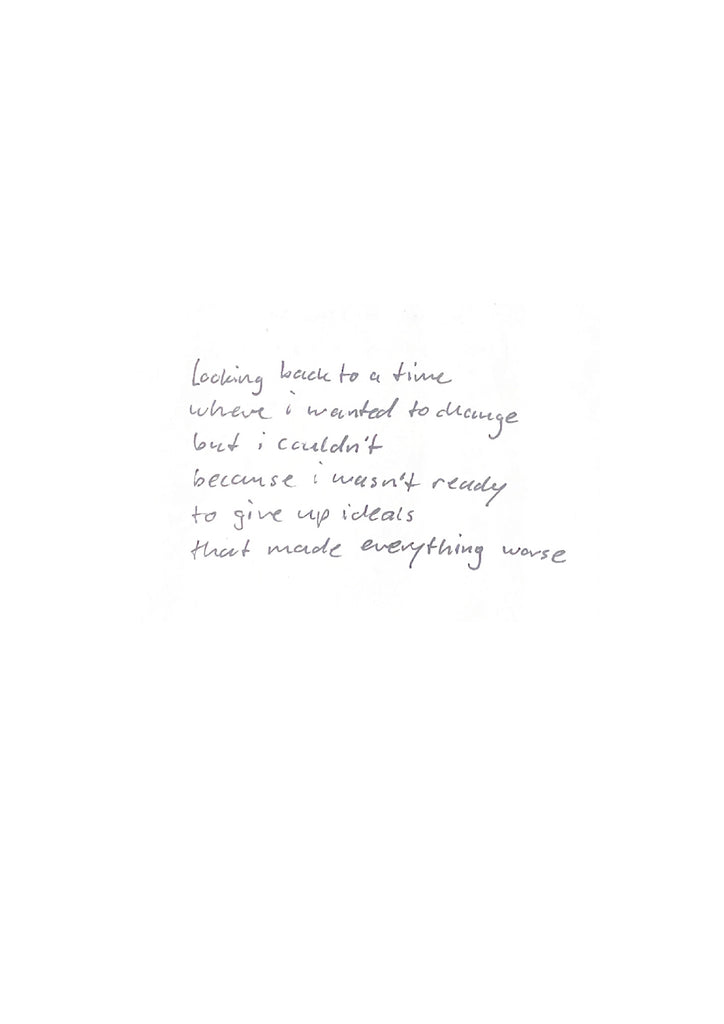 looking back to a time
where i wanted to change
but i couldn't
because i wasn't ready
to give up ideals
that made everything worse